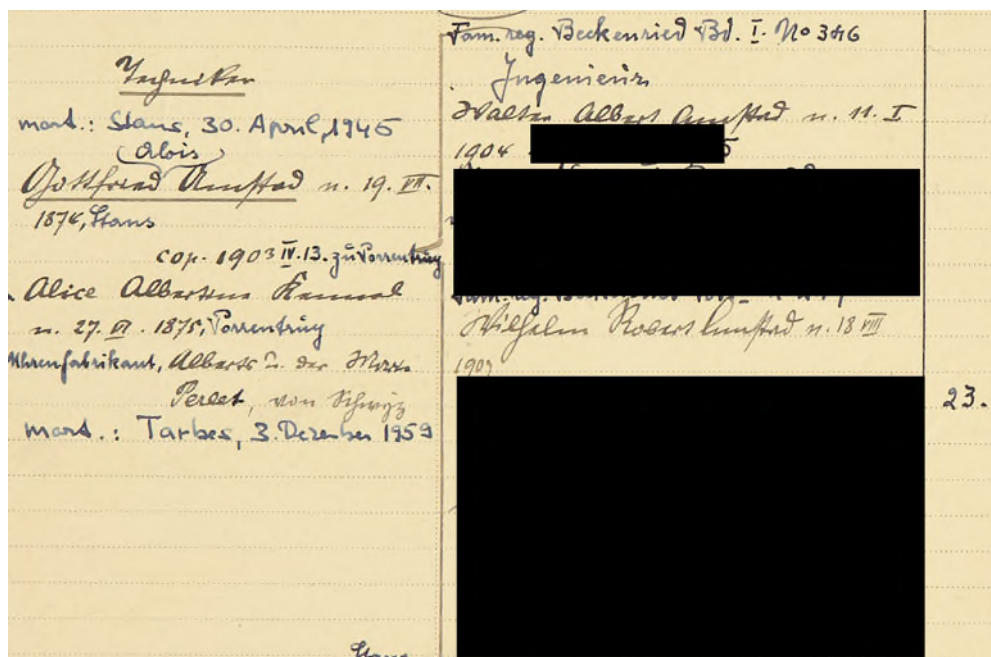 Techniker
mort.: Stans, 30. April, 1945
Alois
Gottfried Amstad n. 19. VII.
1874, Stans
cop. 1903 IV. 13. zu Porrentruy
Alice Albertina
n. 27. VI. 1875, Porrentruy
Uhrenfabrikant, Alberts u. der
von Schwyz
mort.: Tarbes, 3. Dezember 1959
Stans
Fam. reg. Beckenried Bd. I. No 346
Ingenieur
Walter Albert Amstad n. 11. I
1904
Wilhelm Robert Amstad n. 18 VIII
23.